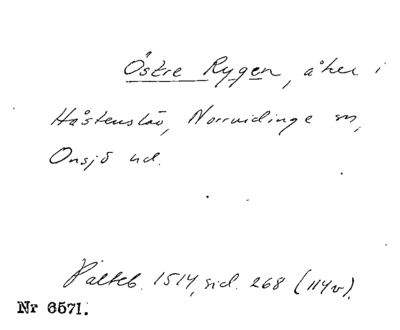 Östre Rygen, åker i
Håstenslöv, Norrvidinge sn,
Onsjö hd.
Palteb. 1514, sid. 268 (114v).
Nr 6571.